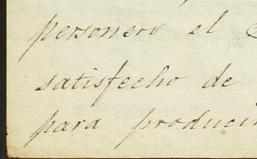 personero el
satisfecho de
para produci